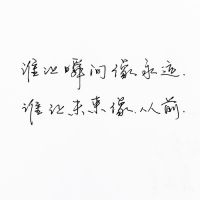 谁让瞬间像永远.
谁让未来像从前.